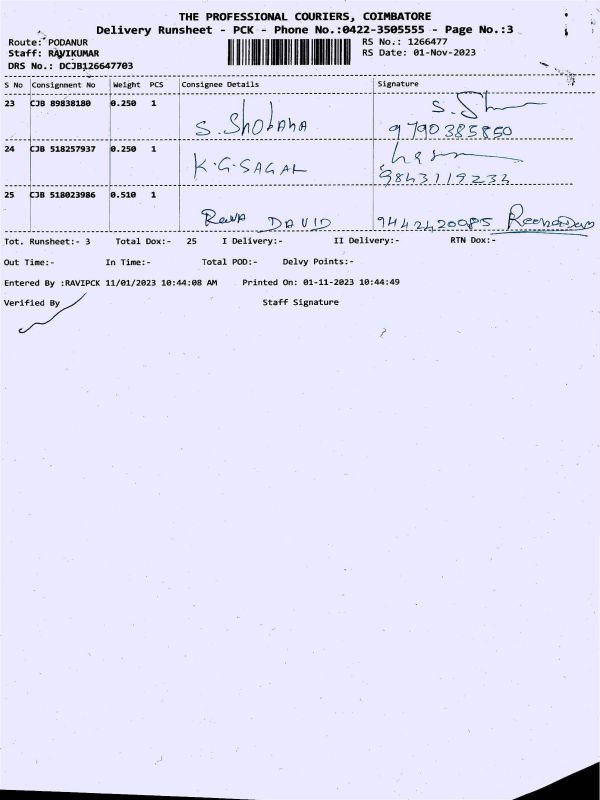 THE PROFESSIONAL COURIERS, COIMBATORE
Delivery Runsheet - PCK - Phone No.:0422-3505555 - Page No.:3
Route: PODANUR RS No.: 1266477
Staff: RAVIKUMAR RS Date: 01-Nov-2023
DRS No.: DCJB126647703
S No Consignment No Weight PCS Consignee Details Signature
23 CJB 89838180 0.250 1
S. Shobana 9790385850
24 CJB 518257937 0.250 1
K.G. SAGAL 9843119234
25 CJB 518023986 0.510 1
DAVID
Tot. Runsheet:- 3 Total Dox:- 25 I Delivery:- II Delivery:- RTN Dox:-
Out Time:- In Time:- Total POD:- Delvy Points:-
Entered By :RAVIPCK 11/01/2023 10:44:08 AM Printed On: 01-11-2023 10:44:49
Verified By Staff Signature